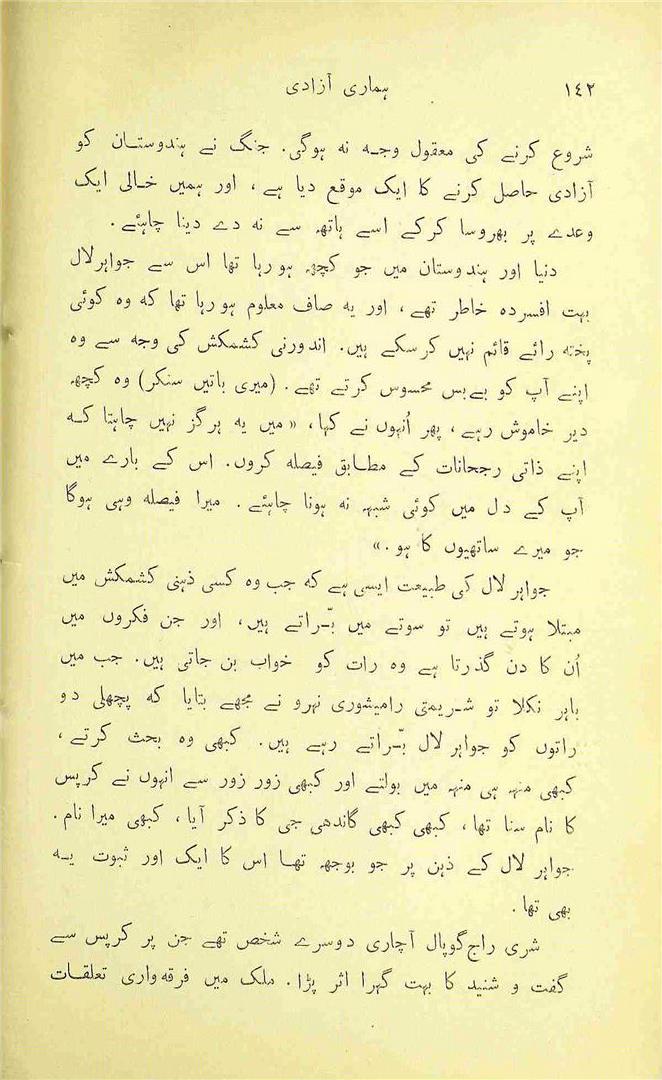 ١٤٢ ہماری آزادی
شروع کرنے کی معقول وجہ نہ ہوگی. جنگ نے ہندوستان کو
آزادی حاصل کرنے کا ایک موقع دیا ہے، اور ہمیں خالی ایک
وعدے پر بھروسا کرکے اسے ہاتھ سے نہ دے دینا چاہئے.
دنیا اور ہندوستان میں جو کچھ ہو رہا تھا اس سے جواہرلال
بہت افسردہ خاطر تھے، اور یہ صاف معلوم ہو رہا تھا کہ وہ کوئی
پختہ رائے قائم نہیں کرسکے ہیں. اندورنی کشمکش کی وجہ سے وہ
اپنے آپ کو بےبس محسوس کرتے تھے. (میری باتیں سنکر) وہ کچھ
دیر خاموش رہے، پھر اُنہوں نے کہا، «میں یہ ہرگز نہیں چاہتا کہ
اپنے ذاتی رجحانات کے مطابق فیصلہ کروں. اس کے بارے میں
آپ کے دل میں کوئی شبہہ نہ ہونا چاہئے. میرا فیصلہ وہی ہوگا
جو میرے ساتھیوں کا ہو.»
جواہر لال کی طبیعت ایسی ہے کہ جب وہ کسی ذہنی کشمکش میں
مبتلا ہوتے ہیں تو سوتے میں بّراتے ہیں، اور جن فکروں میں
اُن کا دن گذرتا ہے وہ رات کو خواب بن جاتی ہیں. جب میں
باہر نکلا تو شریمتی رامیشوری نہرو نے مجھے بتایا کہ پچھلی دو
راتوں کو جواہر لال بّراتے رہے ہیں. کبھی وہ بحث کرتے،
کبھی منہ ہی منہ میں بولتے اور کبھی زور زور سے انہوں نے کرپس
کا نام سنا تھا، کبھی کبھی گاندھی جی کا ذکر آیا، کبھی میرا نام.
جواہر لال کے ذہن پر جو بوجھ تھا اس کا ایک اور ثبوت یہ
بھی تھا.
شری راج گوپال آچاری دوسرے شخص تھے جن پر کرپس سے
گفت و شنید کا بہت گہرا اثر پڑا. ملک میں فرقہ‌واری تعلقات